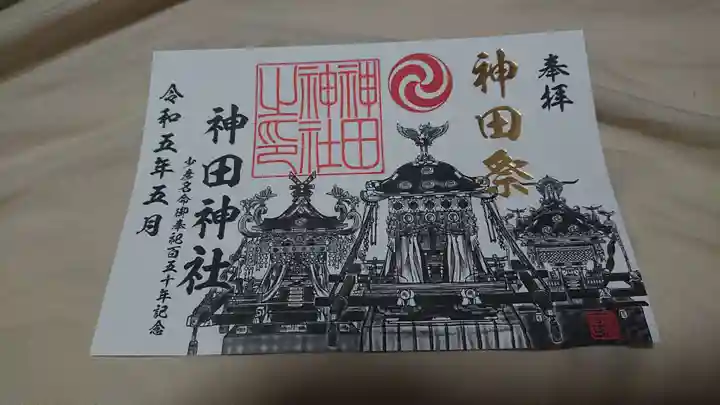 奉拝
神田祭
神田
神社
之印
神田神社
少彦名命御奉祀百五十年記念
令和五年五月